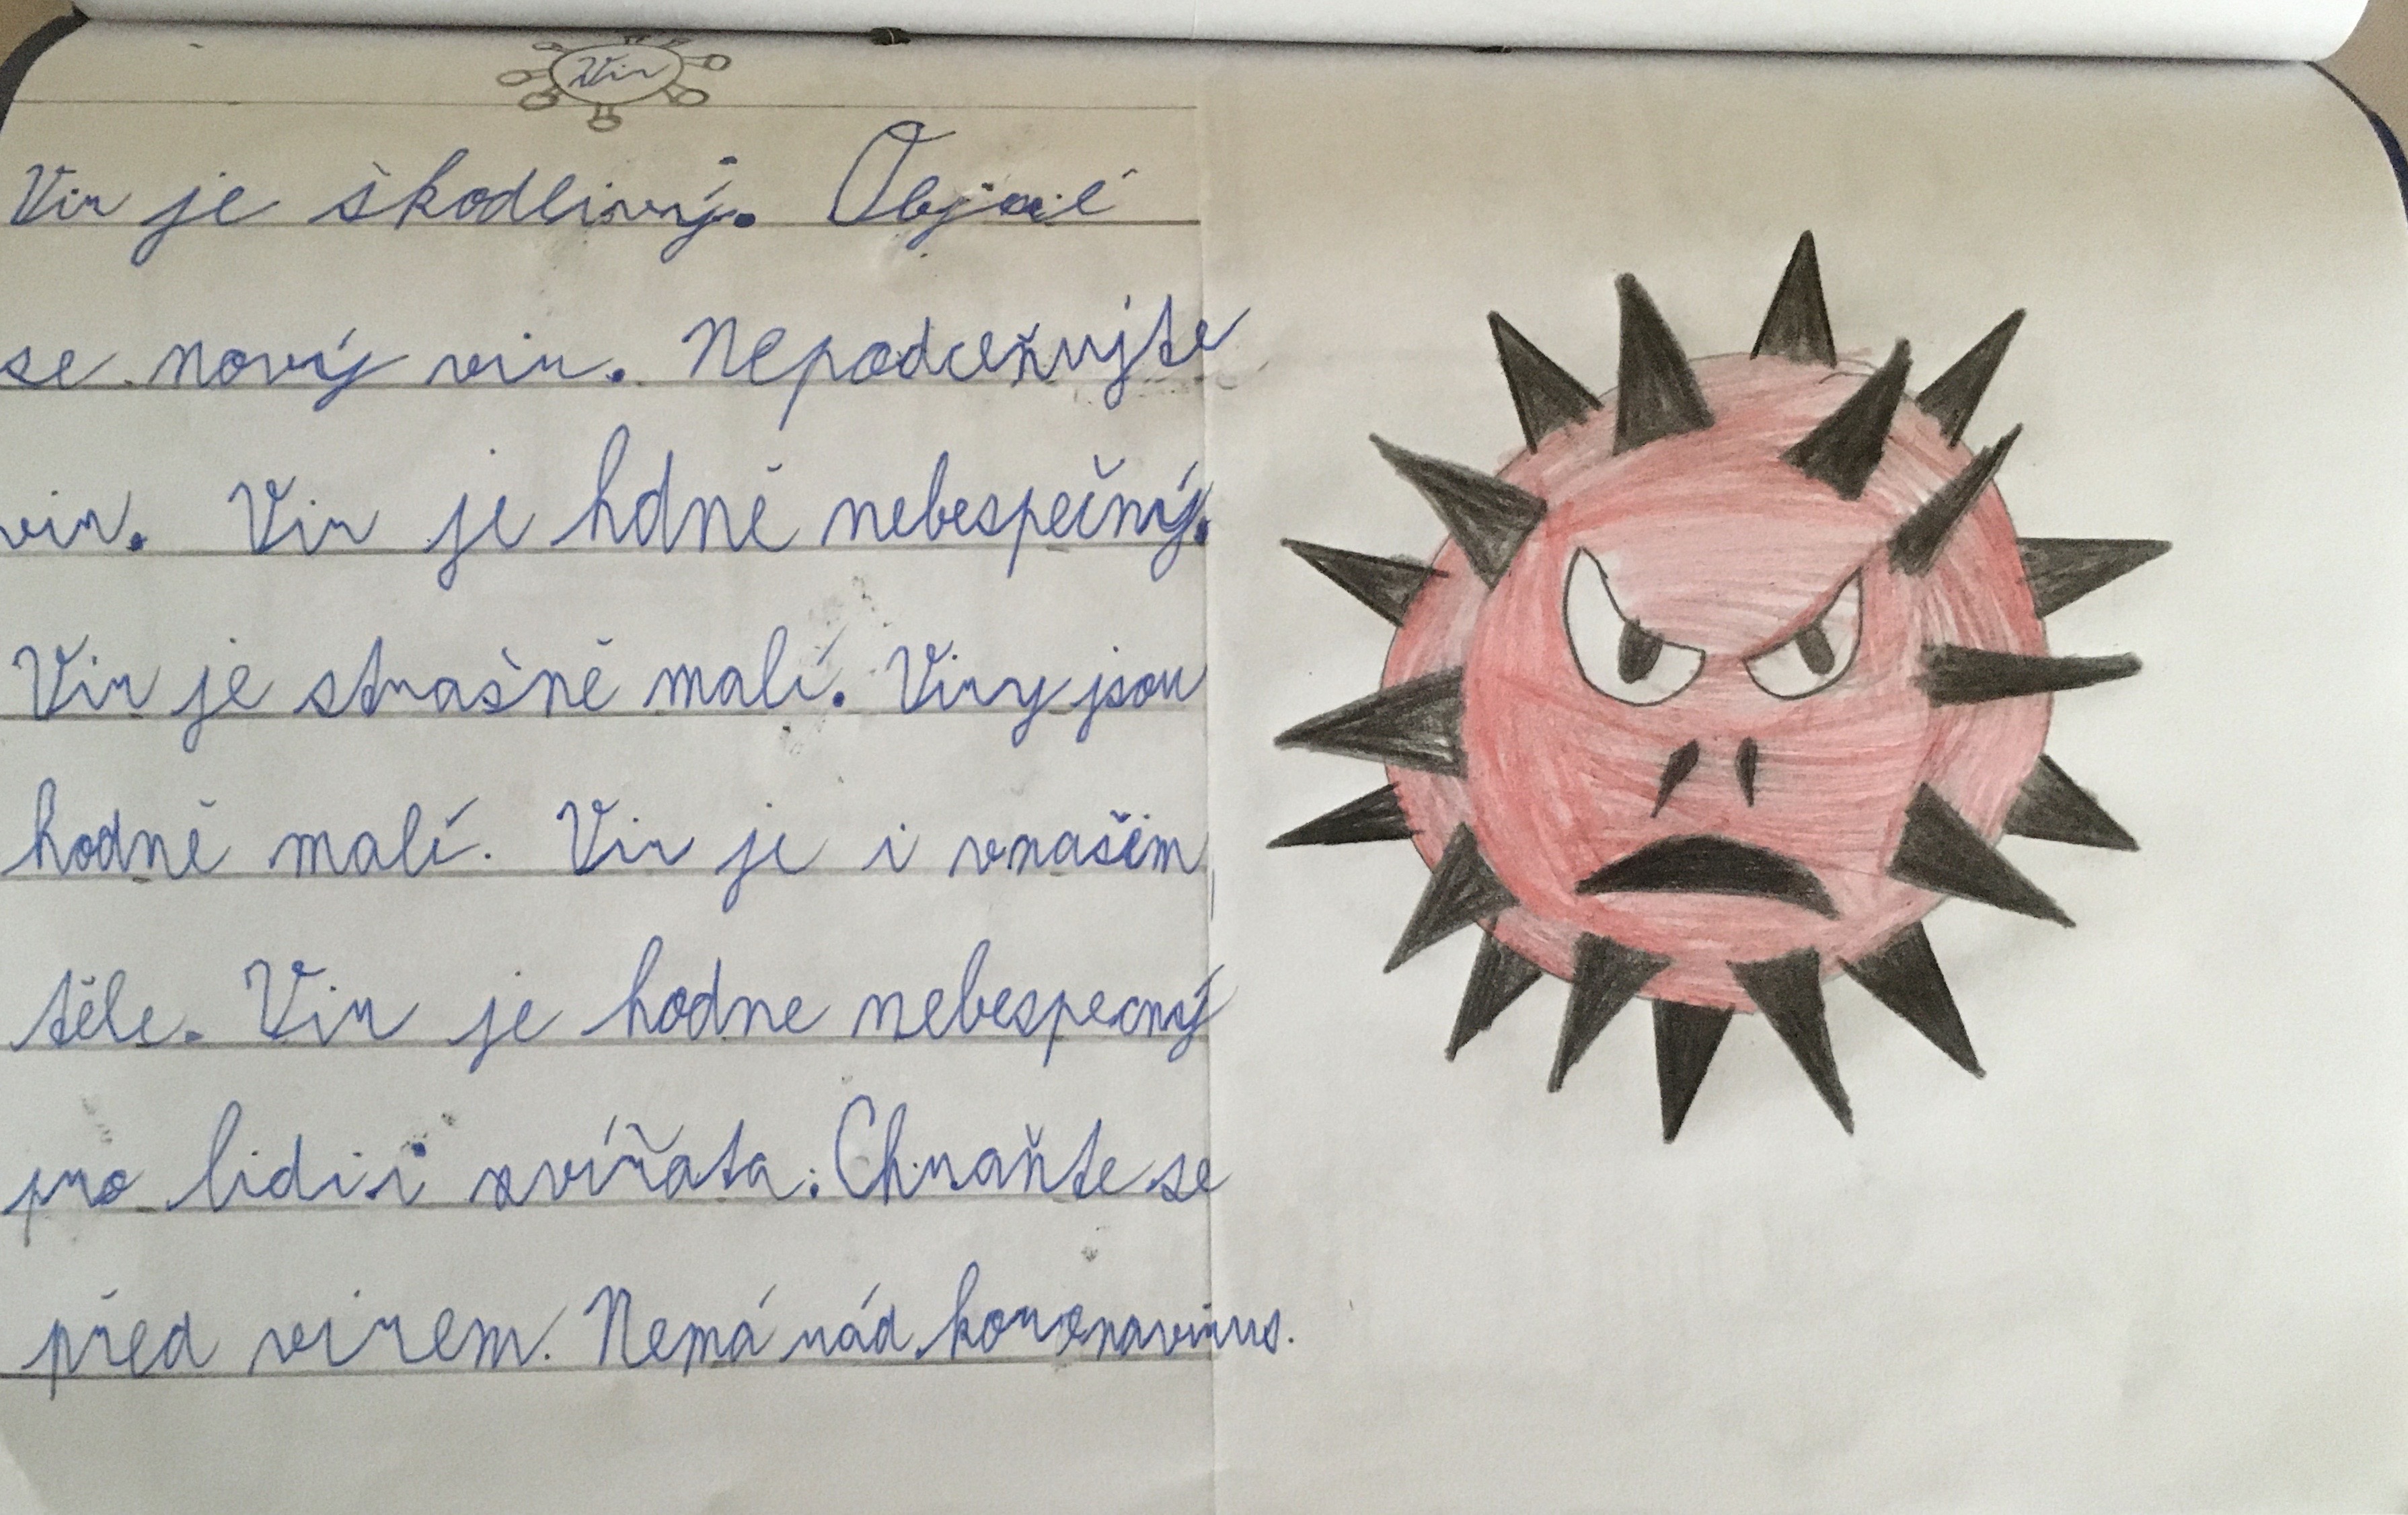 Vir
Vir je škodlivý.
se nový vir. Nepodceňujte
vir. Vir je hdně nebespečný.
Vir je strašně malí. Viry jsou
hodně malí. Vir je i vnašem
těle. Vir je hodne nebespecný
pro lidi i zvířata. Chraňte se
před virem. Nemá rád koronavirus.